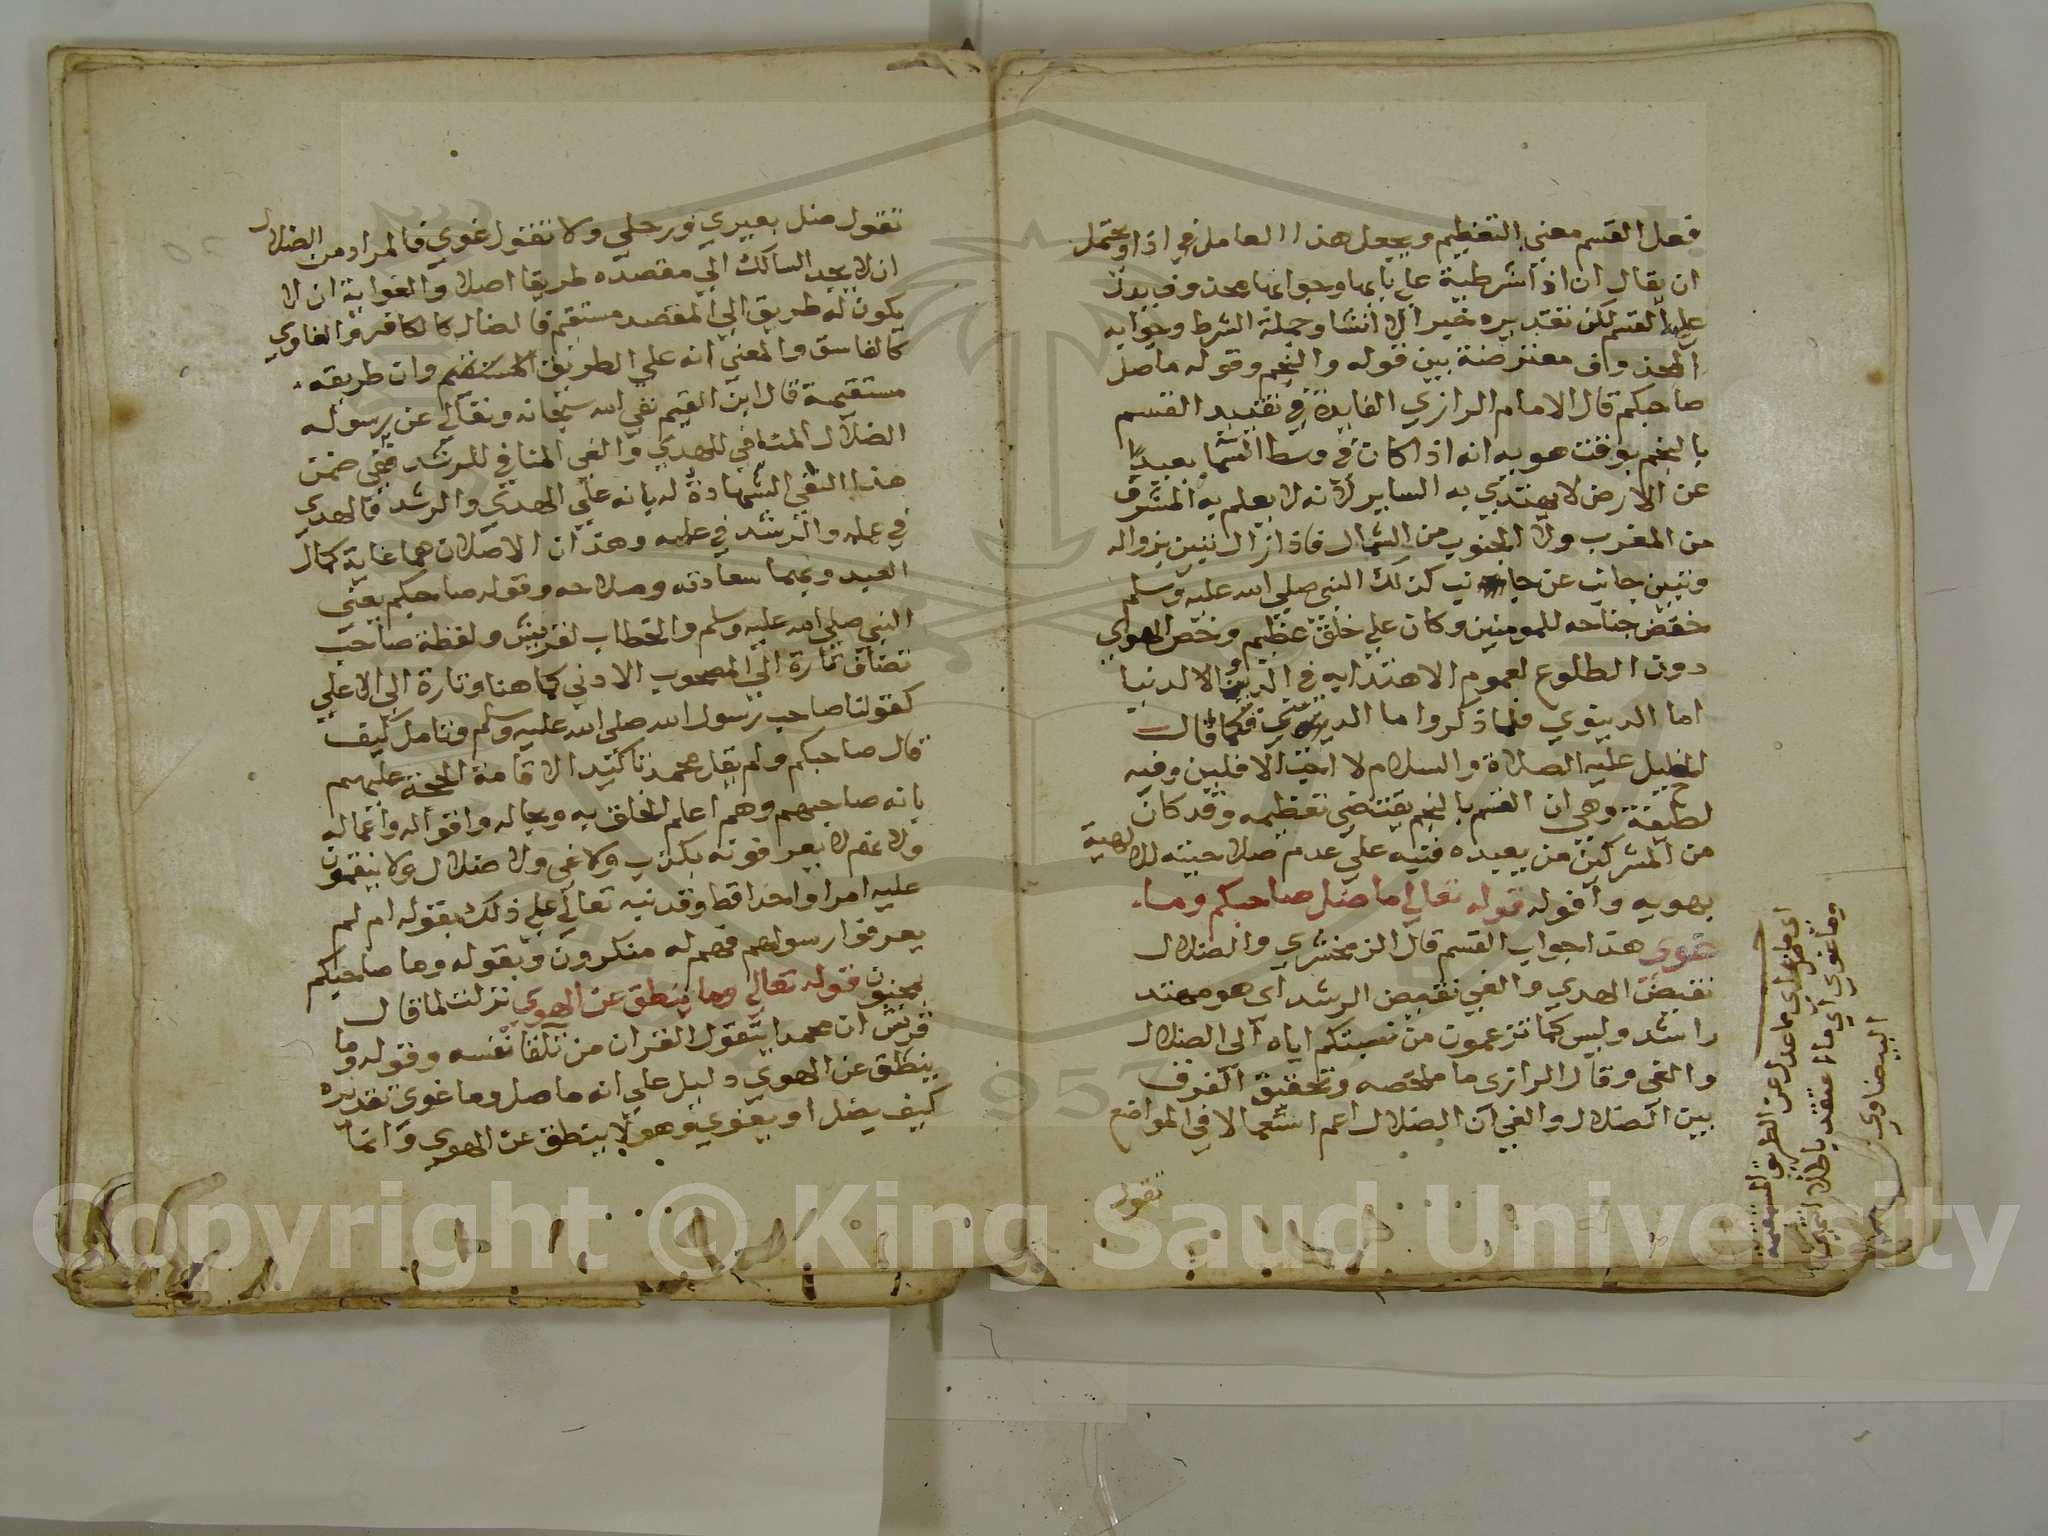 فعل القسم معني التعظيم ويجعل هذا العامل في اذا ويحتمل
ان يقال ان اذا شرطية علي بابها وجوابها محذوف يدل
عليه القسم لكن تقديره خبر الا انشا وجملة الشرط وجوابه
المحذوف معترضة بين قوله والنجم وقوله ما ضل
صاحبكم قال الامام الرازي الفايدة في تقييد القسم
بالنجم بوقت هويه انه اذا كان في وسط السما بعيدا
عن الارض لا يهتدي به الساير لانه لا يعلم به المشرق
من المغرب ولا الجنوب من الشمال فاذا زال تبين بزواله
وتبين جانب عن جانب كذلك النبي صلي الله عليه وسلم
خفض جناحه للمومنين وكان علي خلق عظيم وخص الهوي
دون الطلوع لعموم الاهتدا به في الدين والدنيا
اما الدنيوي فلما ذكروا ما الديني فكما قال
الخليل عليه الصلاة والسلام لا احب الافلين وفيه
لطيفة وهي ان القسم بالنجم يقتضي تعظيمه وقد كان
من المشركين من يعبده فنبه علي عدم صلاحيته للالهية
بهويه وافوله قوله تعالي ما ضل صاحبكم وما
غوى هذا جواب القسم قال الزمخشري والضلال
نقيض الهدي والغي نقيض الرشد اى هو مهتد
راشد وليس كما تزعمون من نسبتكم اياه الى الضلال
والغى وقال الرازى ما ملخصه وتحقيق الفرق
بين الضلال والغي ان الضلال اعم استعمالا في المواضع
تقول
اى ما ضل اى ما عدل عن الطريق المستقيمة
وما غوي اي ما اعتقد باطلا انتهى
البيضاوي
تقول ضل بعيري ورحلي ولا تقول غوي فالمراد من الضلال
ان لا يجد السالك الي مقصده طريقا اصلا والغواية ان لا
يكون له طريق الي المقصد مستقيم فالضال كالكافر والغاوي
كالفاسق والمعني انه علي الطريق المستقيم وان طريقه
مستقيمة قال ابن القيم نفي الله سبحانه وتعالي عن رسوله
الضلال المنافي للهدي والغي المنافي للرشد ففي ضمن
هذا النفي الشهادة له بانه علي الهدي والرشد فالهدي
في علمه والرشد في عمله وهذان الاصلان هما غاية كمال
العبد وبهما سعادته وصلاحه وقوله صاحبكم يعني
النبي صلي الله عليه وسلم والخطاب لقريش ولفظة صاحب
تضاف تارة الي المصحوب الادني كما هنا وتارة الي الاعلي
كقولنا صاحب رسول الله صلي الله عليه وسلم وتامل كيف
قال صاحبكم ولم يقل محمد تاكيدا لاقامة الحجة عليهم
بانه صاحبهم وهم اعلم الخلق به وبحاله واقواله واعماله
وانهم لا يعرفونه بكذب ولا غى ولا ضلال ولا ينقمون
عليه امرا واحدا قط وقد نبه تعالي علي ذلك بقوله ام لم
يعرفوا رسولهم فهم له منكرون وبقوله وما صاحبكم
بمجنون قوله تعالي وما ينطق عن الهوي نزلت لما قال
قريش ان محمدا يتقول القران من تلقا نفسه وقوله وما
ينطق عن الهوي دليل علي انه ما ضل وما غوى تقديره
كيف يضل او يغوي وهو لا ينطق عن الهوي وانما
Copyright © King Saud University